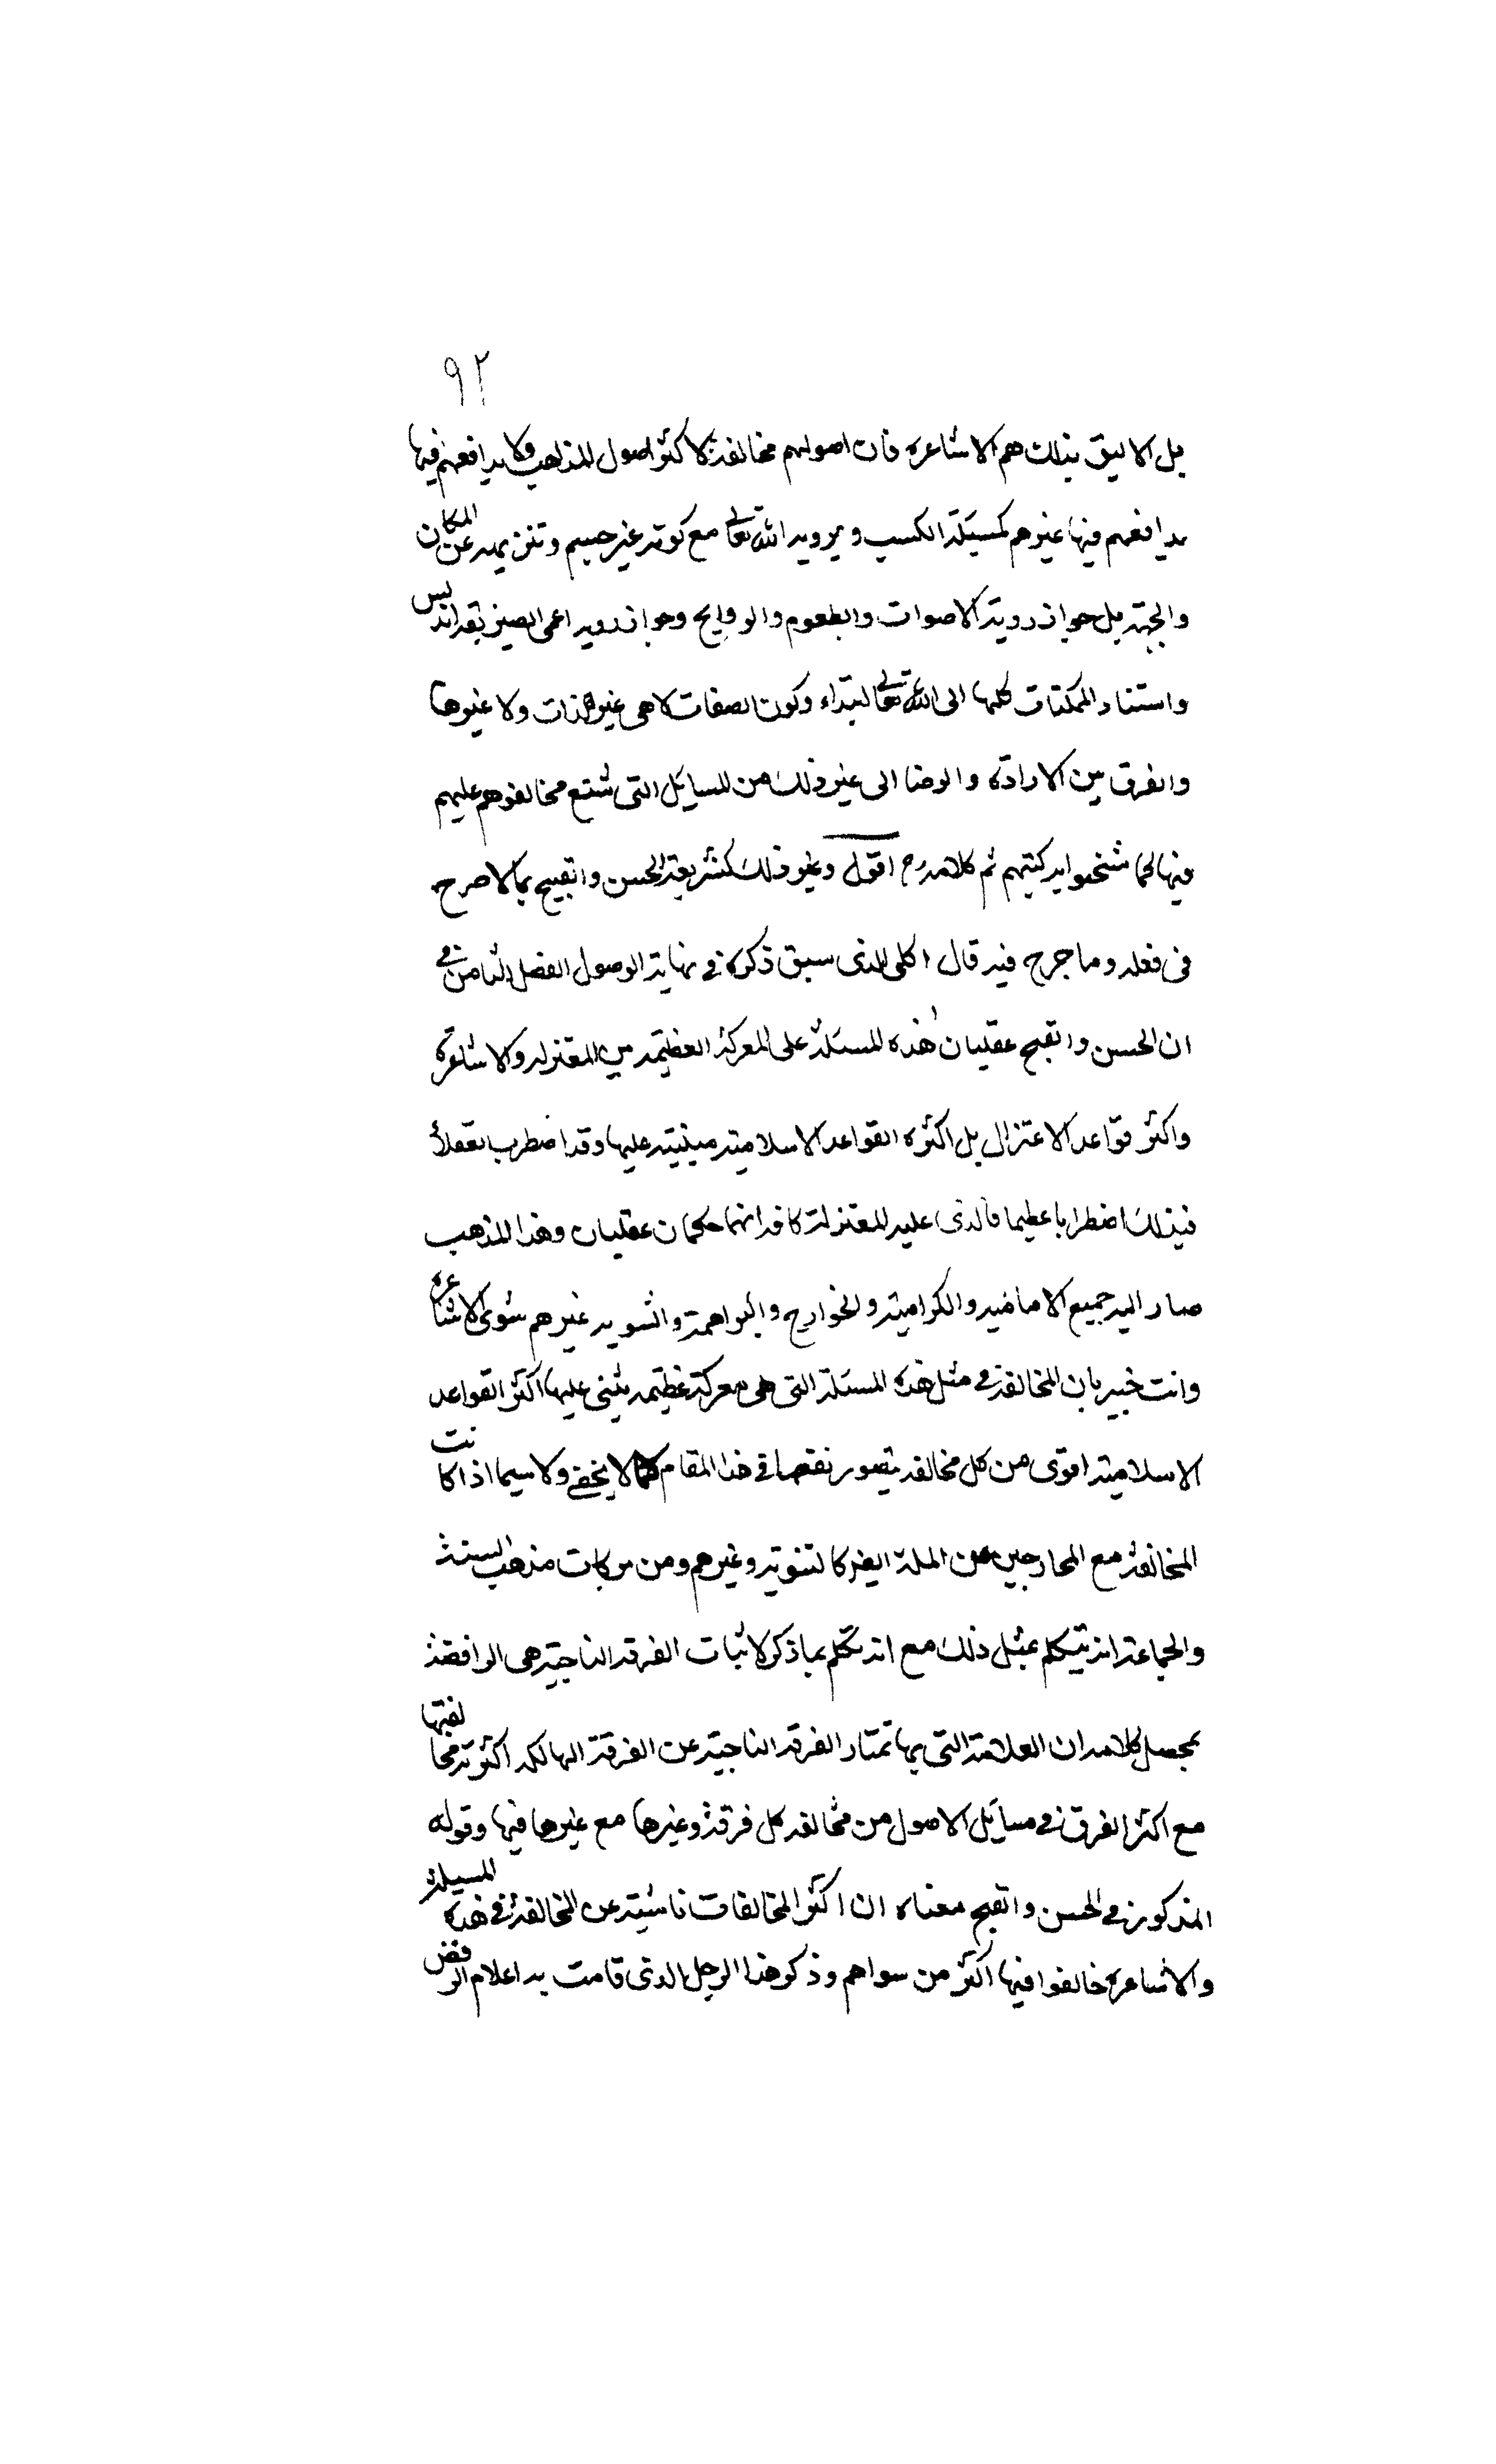 ٩٢
بل الاليق بذلك هم الاشاعرة فان اصولهم مخالفة لاكثر اصول المذاهب ولا يدافعهم فيها
يدافعهم فيها غيرهم كمسئلة الكسب و يرويه الله تعالى مع كونه غير جسم وتنزيهه عن المكان
والجهة بل جواز روية الاصوات والطعوم والروايح وجواز رويه اعمى الصين بقه اندلس
واستناد الممكنات كلها الى الله تعالى ابتداء وكون الصفات لا هى غير الذات ولا غيرها
والفرق بين الارادة والرضا الى غير ذلك من المسايل التى شنع مخالفوهم عليهم
فيها كما شخنوا به كتبهم ثم كلامه رح اقول وغير ذلك كشريعة الحسن والقبيح بما لا صرح
فى فعله وما جرح فيه قال اكلى الذى سبق ذكره فى نهاية الوصول الفصل الثامن فى
ان الحسن والقبح عقليان هذه المسئلة على المعركة العظيمه بين المعتزله والاشاعرة
واكثر قواعد الاعتزال بل اكثره القواعد الاسلامية مبنية عليها وقد اضطرب العقلأ
فيذلك اضطرابا عظيما فالذى عليه المعتزلة كافه انهما حكمان عقليان وهذا المذهب
صار اليه جميع الاماميه والكرامية والخوارج والبراهمة والثنويه غيرهم سوى الاشاعره
وانت خبير بان المخالفة فى مثل هذه المسئلة التى هى معركة عظيمه يبنى عليها اكثر القواعد
الاسلامية اقوى من كل مخالفه يتصور نقصها فى هذا المقام كما لا يخفى ولا سيما اذا كانت
المخالفة مع الخارجين عن الملة ايضا كالثنوية وغيرهم ومن بركات مذهب السنة
والجماعة انه يتكلم بمثل ذلك مع انه تكلم بما ذكر لاثبات الفرقه الناجية هى الرافضة
بمحصل كلامه ان العلامة التى بها تمتاز الفرقه الناجية عن الفرقة الهالكه اكثرية مخالفتها
مع اكثر الفرق فى مسايل الاصول من مخالفه كل فرقة وغيرها مع غيرها فيها وقوله
المذكور فى الحسن والقبح معناه ان اكثر المخالفات ناشية عن المخالفة فى هذه المسيلة
والاشاعرة خالفوا فيها اكثر من سواهم وذكر هذا الرجل الذى قامت به اعلام الرفض